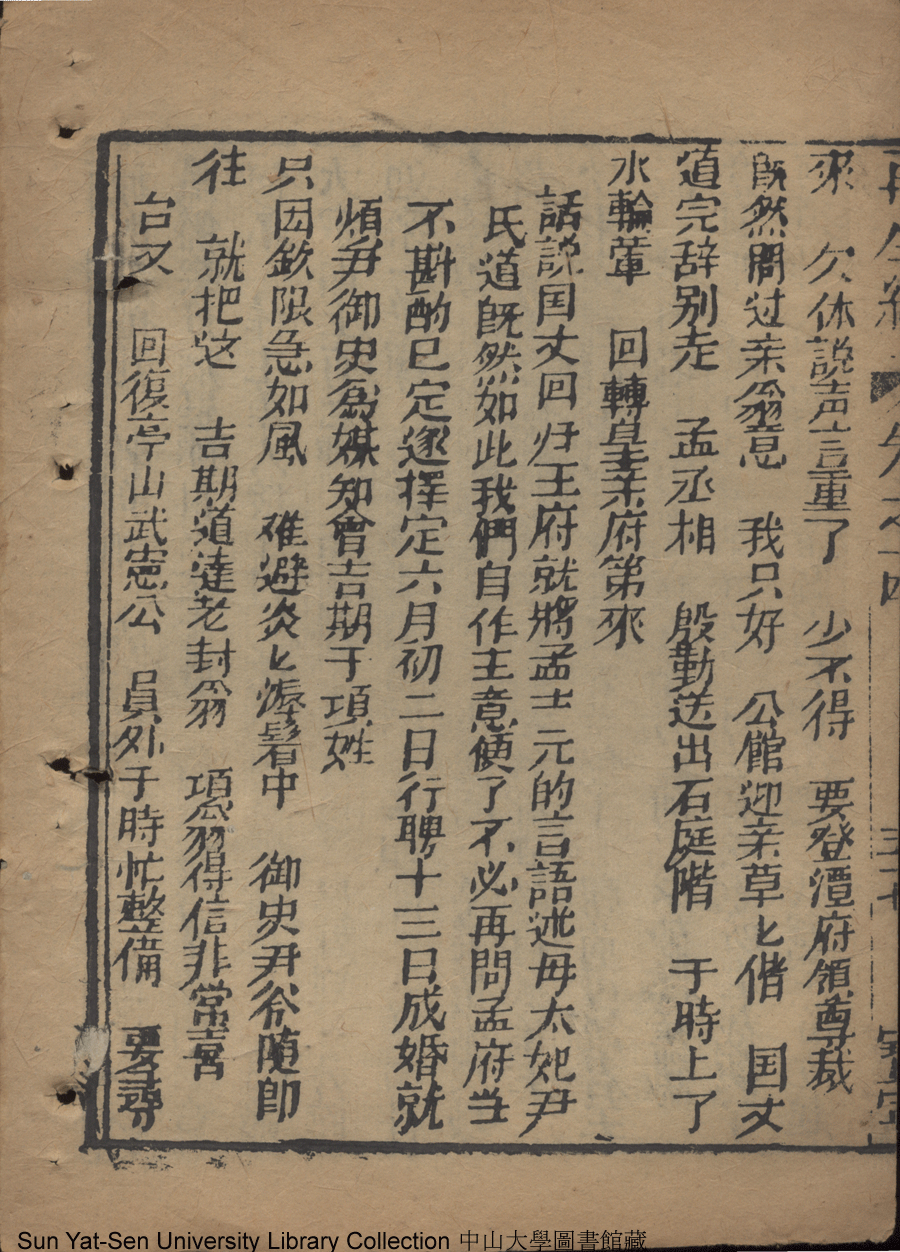 來 欠休説声言重了 少不得 要登潭府領尊裁
既然問过亲翁意 我只好 公館迎亲草匕偕 国丈
道完辞别走 孟丞相 殷勤送出石庭階 于時上了
水輪葷 回轉皇亲府第來
話説国丈回归王府就將孟士元的言語述毋太妃尹
氏道既然如此我們自作主意便了不必再問孟府当
不斟酌已定遂择定六月初二日行聘十三日成婚就
煩尹御史為媒知會吉期于項姓
只因欽限急如風 难避炎匕漽暑中 御史尹爷随即
往 就把这 吉期道達老封翁 項翁得信非常喜
台又 回復亭山武憲公 員外于時忙整備 要尋
三十七
Sun Yat-Sen University Library Collection 中山大學圖書館藏